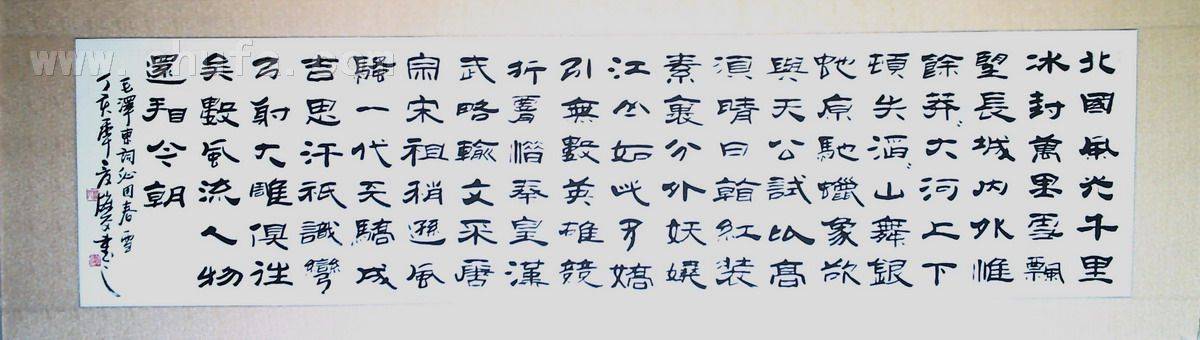 北國風光千里
冰封萬里雪飄
望長城內外惟
餘莽〻大河上下
頓失滔〻山舞銀
蛇原馳蠟象欲
與天公試比高
須晴日看紅装
素裹分外妖嬈
江山如此多嬌
引無數英雄競
折腰惜秦皇漢
武略輸文采唐
宗宋祖稍遜風
騷一代天驕成
吉思汗祇識彎
弓射大雕俱往
矣數風流人物
還看今朝
毛澤東詞沁园春雪
丁亥年書之